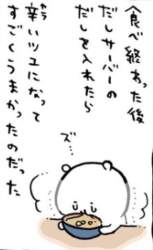 食べ終わった後
だしサーバーの
だしを入れたら
辛いツユになって
すごくうまかったのだった
ズ…